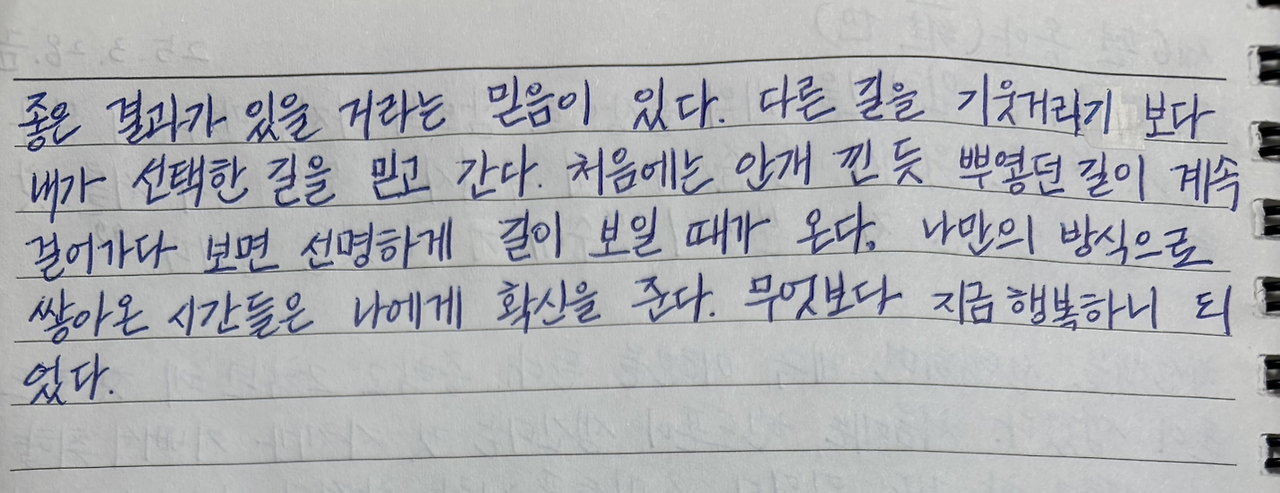 좋은 결과가 있을 거라는 믿음이 있다. 다른 길을 기웃거리기 보다
내가 선택한 길을 믿고 간다. 처음에는 안개 낀 듯 뿌옇던 길이 계속
걸어가다 보면 선명하게 길이 보일 때가 온다. 나만의 방식으로
쌓아온 시간들은 나에게 확신을 준다. 무엇보다 지금 행복하니 되
었다.